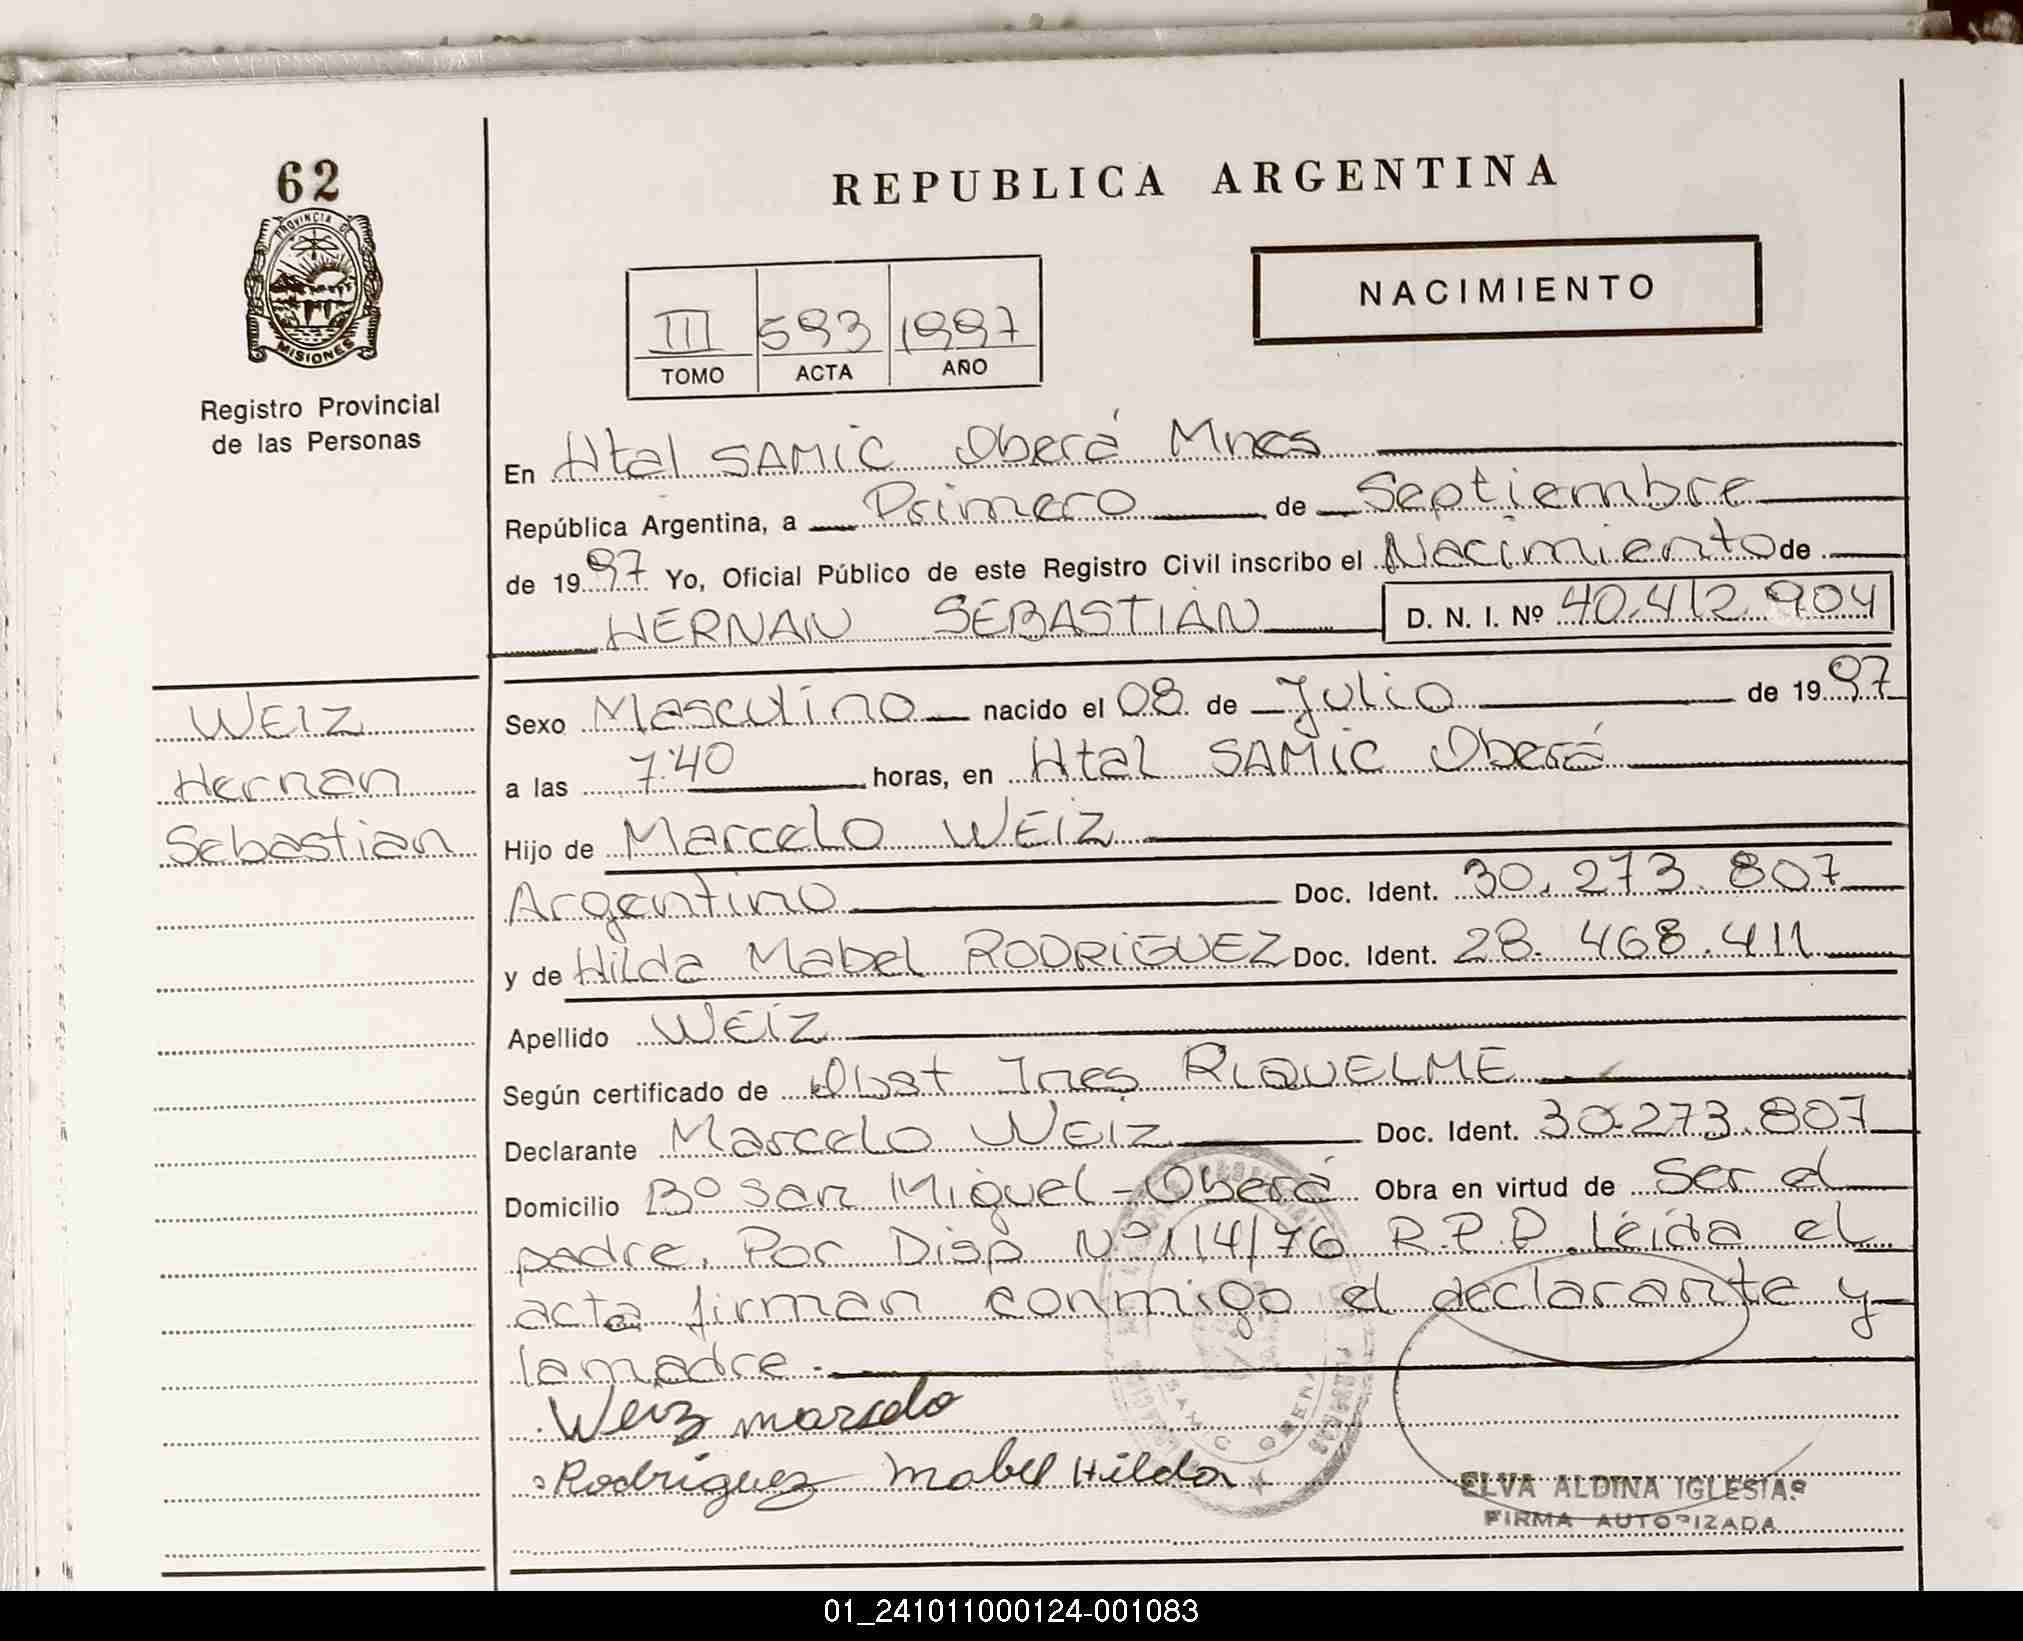 62
PROVINCIA DE
MISIONES
Registro Provincial
de las Personas
REPUBLICA ARGENTINA
NACIMIENTO
III 593 1997
TOMO ACTA AÑO
En Htal SAMIC Oberá Mnes
República Argentina, a Primero de Septiembre
de 1997 Yo, Oficial Público de este Registro Civil inscribo el Nacimiento de
HERNAN SEBASTIAN D. N. I. Nº 40.412.904
WEIZ
Hernan
Sebastian
Sexo Masculino nacido el 08 de Julio de 1997
a las 7:40 horas, en Htal SAMIC Oberá
Hijo de Marcelo WEIZ
Argentino Doc. Ident. 30.273.807
y de Hilda Mabel RODRIGUEZ Doc. Ident. 28.468.411
Apellido WEIZ
Según certificado de Obst Ines RIQUELME
Declarante Marcelo WEIZ Doc. Ident. 30.273.807
Domicilio Bº San Miguel - Oberá Obra en virtud de ser el
padre. Por Disp Nº 114/76 R.P.P. leída el
acta firman conmigo el declarante y
la madre.
Weiz marcelo
Rodriguez Mabel Hilda
ELVA ALDINA IGLESIAS
FIRMA AUTORIZADA
01_241011000124-001083